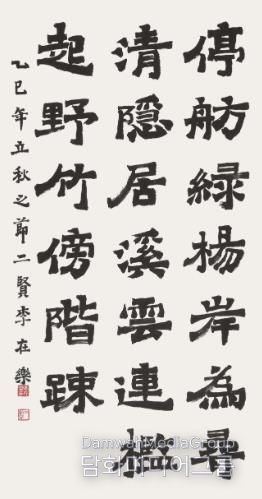 停舫緑楊岸為尋
清隠居溪雲連檻
起野竹傍階踈
乙巳年立秋之節二賢李在樂
Damwha Media Group
담화미디어그룹